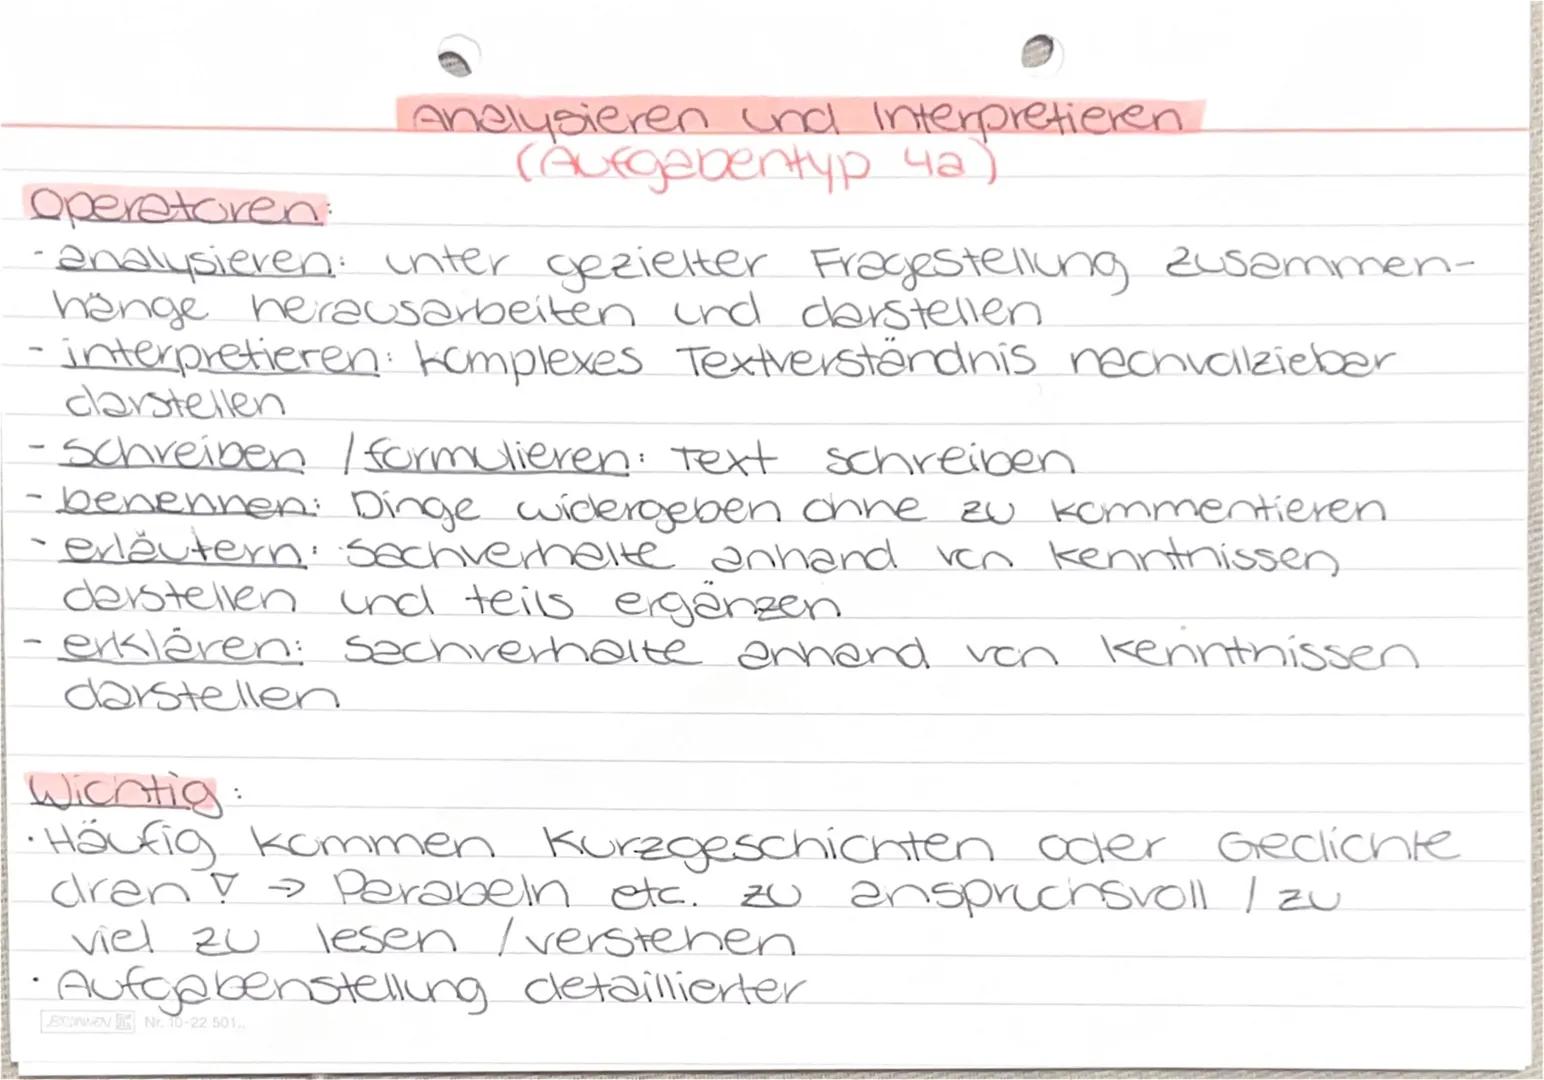 Analysieren und Interpretieren
(Aufgabentyp 4a)
Operatoren:
- analysieren: unter gezielter Fragestellung Zusammen-
hänge herausarbeiten und darstellen
- interpretieren: komplexes Textverständnis nachvollziebar
darstellen
- schreiben / formulieren: Text schreiben
- benennen: Dinge widergeben ohne zu kommentieren
- erläutern: Sachverhalte anhand von Kenntnissen
darstellen und teils ergänzen
- erklären: Sachverhalte anhand von Kenntnissen
darstellen
Wichtig:
· Häufig kommen Kurzgeschichten oder Gedichte
dran! → Parabeln etc. zu anspruchsvoll / zu
viel zu lesen / verstehen
· Aufgabenstellung detaillierter
BRUNNEN Nr. 10-22 501..